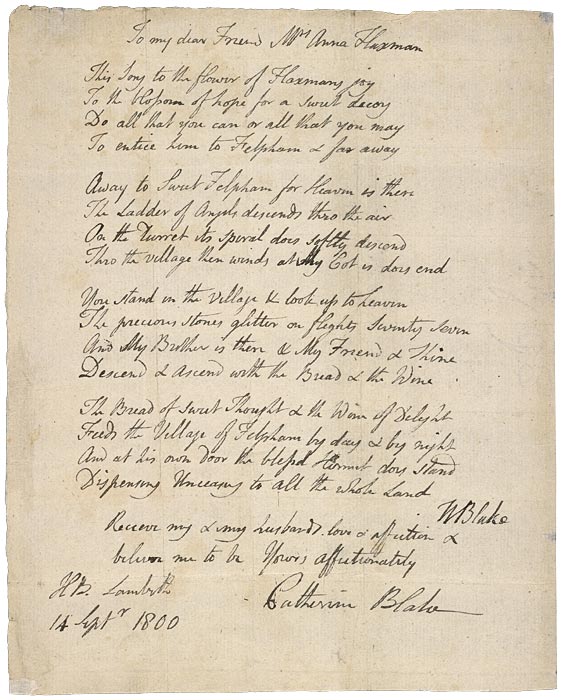 To my dear Friend Mrs Anna Flaxman
This Song to the flower of Flaxmans joy
To the blossom of hope for a sweet decoy
Do all that you can or all that you may
To entice him to Felpham & far away
Away to Sweet Felpham for Heaven is there
The Ladder of Angels descends thro the air
On the Turret its spiral does softly descend
Thro the village then winds at My Cot it does end
You stand in the village & look up to heaven
The precious stones glitter on flights seventy seven
And My Brother is there & My Friend & Thine
Descend & Ascend with the Bread & the Wine
The Bread of sweet Thought & the Wine of Delight
Feeds the Village of Felpham by day & by night
And at his own Door the blessd Hermit does stand
Dispensing Unceasing to all the whole Land
W Blake
Recieve my & my husbands love & affection &
believe me to be Yours affectionately
Catherine Blake
H B. Lambeth
14 Septr 1800